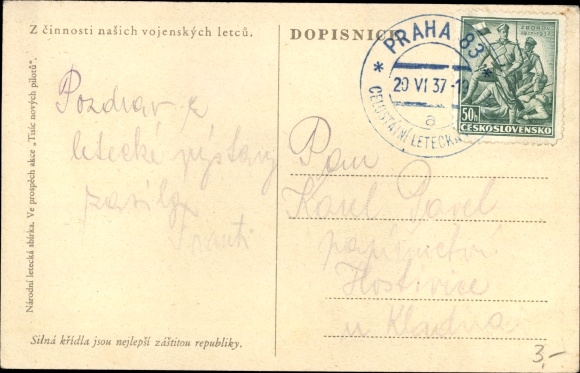 Z činnosti našich vojenských letců.
Národní letecká sbírka. Ve prospěch akce „Tisíc nových pilotů".
Pozdrav z
letecké výstavy
zasílá
Franti
Silná křídla jsou nejlepší záštitou republiky.
DOPISNICE
* PRAHA 83 *
20 VI 37
a
CELOSTÁTNÍ LETECKÁ
ZBOROV
1917-1937
50h
ČESKOSLOVENSKO
Pan
Karel Pavel
papírnictví
Hostivice
u Kladna
3,-